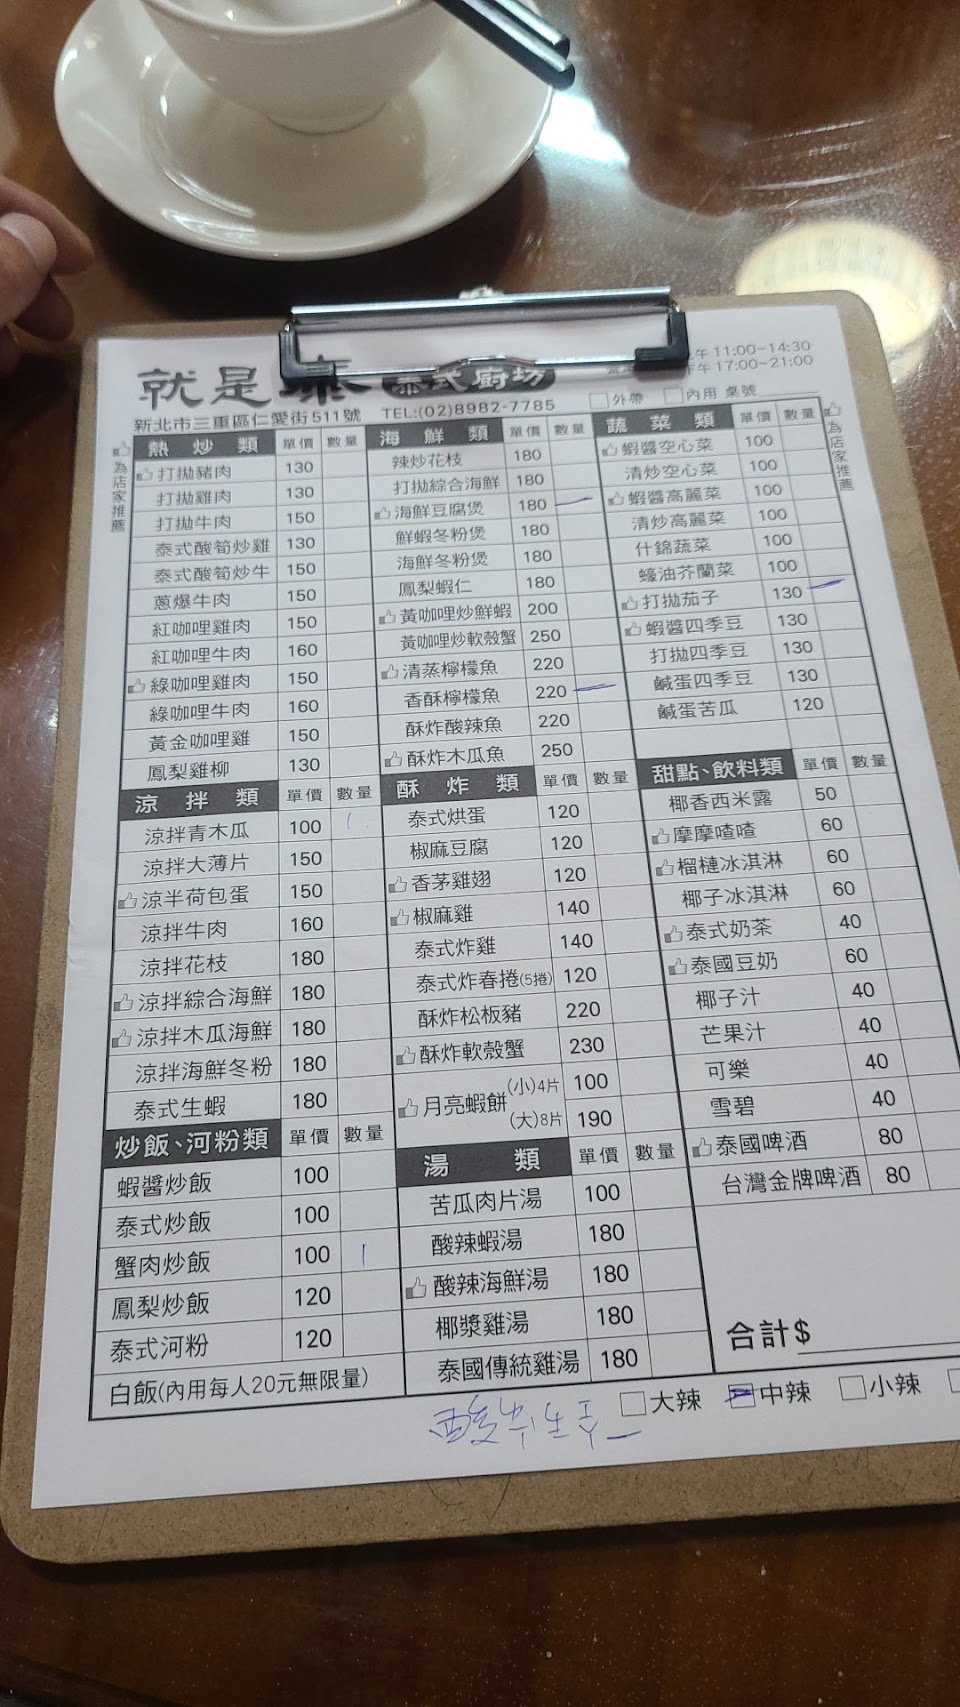 就是泰 泰式廚坊
午 11:00~14:30
午 17:00~21:00
新北市三重區仁愛街511號 TEL:(02)8982-7785 外帶 內用 桌號
為店家推薦
熱炒類 單價 數量
打拋豬肉 130
打拋雞肉 130
打拋牛肉 150
泰式酸筍炒雞 130
泰式酸筍炒牛 150
蔥爆牛肉 150
紅咖哩雞肉 150
紅咖哩牛肉 160
綠咖哩雞肉 150
綠咖哩牛肉 160
黃金咖哩雞 150
鳳梨雞柳 130
涼拌類 單價 數量
涼拌青木瓜 100
涼拌大薄片 150
涼半荷包蛋 150
涼拌牛肉 160
涼拌花枝 180
涼拌綜合海鮮 180
涼拌木瓜海鮮 180
涼拌海鮮冬粉 180
泰式生蝦 180
炒飯、河粉類 單價 數量
蝦醬炒飯 100
泰式炒飯 100
蟹肉炒飯 100
鳳梨炒飯 120
泰式河粉 120
白飯(內用每人20元無限量)
海鮮類 單價 數量
辣炒花枝 180
打拋綜合海鮮 180
海鮮豆腐煲 180
鮮蝦冬粉煲 180
海鮮冬粉煲 180
鳳梨蝦仁 180
黃咖哩炒鮮蝦 200
黃咖哩炒軟殼蟹 250
清蒸檸檬魚 220
香酥檸檬魚 220
酥炸酸辣魚 220
酥炸木瓜魚 250
酥炸類 單價 數量
泰式烘蛋 120
椒麻豆腐 120
香茅雞翅 120
椒麻雞 140
泰式炸雞 140
泰式炸春捲(5捲) 120
酥炸松板豬 220
酥炸軟殼蟹 230
月亮蝦餅 (小)4片 100
(大)8片 190
湯類 單價 數量
苦瓜肉片湯 100
酸辣蝦湯 180
酸辣海鮮湯 180
椰漿雞湯 180
泰國傳統雞湯 180
蔬菜類 單價 數量
蝦醬空心菜 100
清炒空心菜 100
蝦醬高麗菜 100
清炒高麗菜 100
什錦蔬菜 100
蠔油芥蘭菜 100
打拋茄子 130
蝦醬四季豆 130
打拋四季豆 130
鹹蛋四季豆 130
鹹蛋苦瓜 120
甜點、飲料類 單價 數量
椰香西米露 50
摩摩喳喳 60
榴槤冰淇淋 60
椰子冰淇淋 60
泰式奶茶 40
泰國豆奶 60
椰子汁 40
芒果汁 40
可樂 40
雪碧 40
泰國啤酒 80
台灣金牌啤酒 80
為店家推薦
合計$
大辣 中辣 小辣